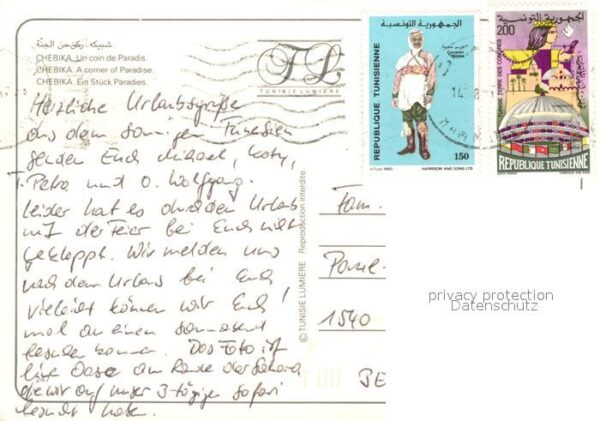 شبيكة، ركن من الجنة
CHEBIKA. Un coin de Paradis.
CHEBIKA. A corner of Paradise.
CHEBIKA. Ein Stück Paradies.
TL
TUNISIE LUMIERE
Herzliche Urlaubsgrüße
aus dem sonnigen Tunesien
senden Euch Michael, Katy,
T. Petra und O. Wolfgang.
Leider hat es durch den Urlaub
mit der Feier bei Euch nicht
geklappt. Wir melden uns
nach dem Urlaub bei Euch
vielleicht können wir Euch
mal an einem Sonnabend
besuchen kommen. Das Foto ist
eine Oase am Rande der Sahara
die wir auf unser 3-tägigen Safari
besucht haben.
247
© TUNISIE LUMIERE Reproduction interdite
الجمهورية التونسية
REPUBLIQUE TUNISIENNE
150
HARRISON AND SONS LTD
الجمهورية التونسية
200
TUNISIE TERRE DES CONGRES
REPUBLIQUE TUNISIENNE
14. 8
Fam.
1540
BE
privacy protection
Datenschutz